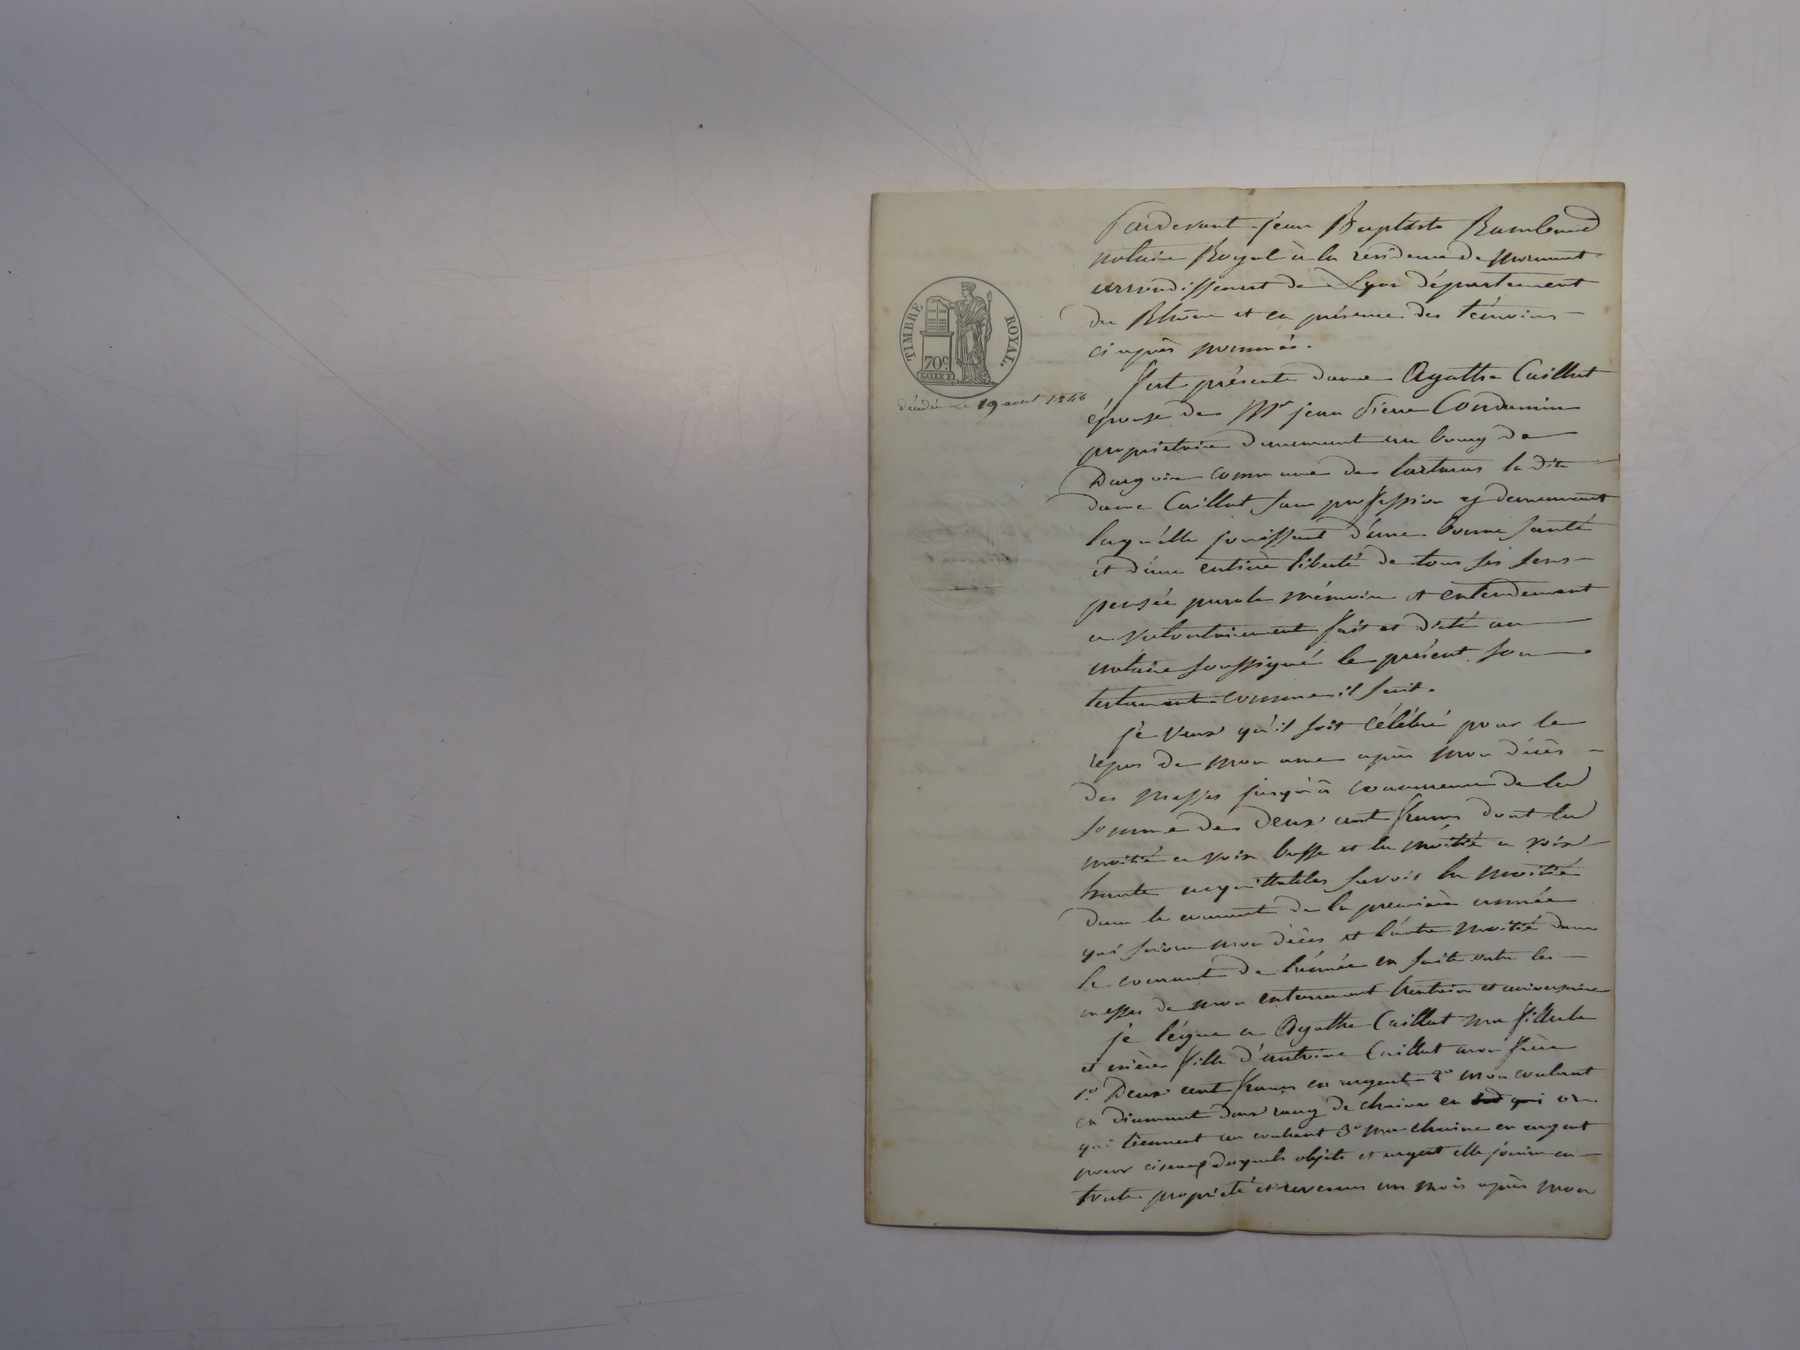 TIMBRE ROYAL.
70c
décédée le 19 août 1846
Pardevant jean Baptiste Rambaud
notaire Royal à la résidence de mornant
arrondissement de Lyon département
du Rhône et en présence des témoins
ci après nommés.
fut présente dame Agathe Caillat
épouse de Mr jean Pierre Condamin
propriétaire demeurant au bourg de
commune de la dite
dame Caillat sans profession y demeurant
laquelle jouissant d'une bonne santé
et d'une entière liberté de tous ses sens
pensée parole mémoire et entendement
a volontairement fait et dicté au
notaire soussigné le présent son
testament comme il suit.
je veux qu'il soit célébré pour le
repos de mon ame après mon décès
des messes jusqu'à concurrence de la
somme de deux cent francs dont la
moitié a voix basse et la moitié a voix
haute acquittables savoir la moitié
dans le courant de la première année
qui suivra mon décès et l'autre moitié dans
le courant de l'année en suite outre les
messes de mon enterrement trentain et aniversaire
je lègue a Agathe Caillat ma fillule
et nièce fille d'antoine Caillat mon frère
1o Deux cent francs en argent 2o mon coulant
en diamant deux rang de chaine en or
qui tiennent au coulant 3o ma chaine en argent
pour ciseaux desquels objets et argent elle jouira en
toute propriété et revenus un mois après mon